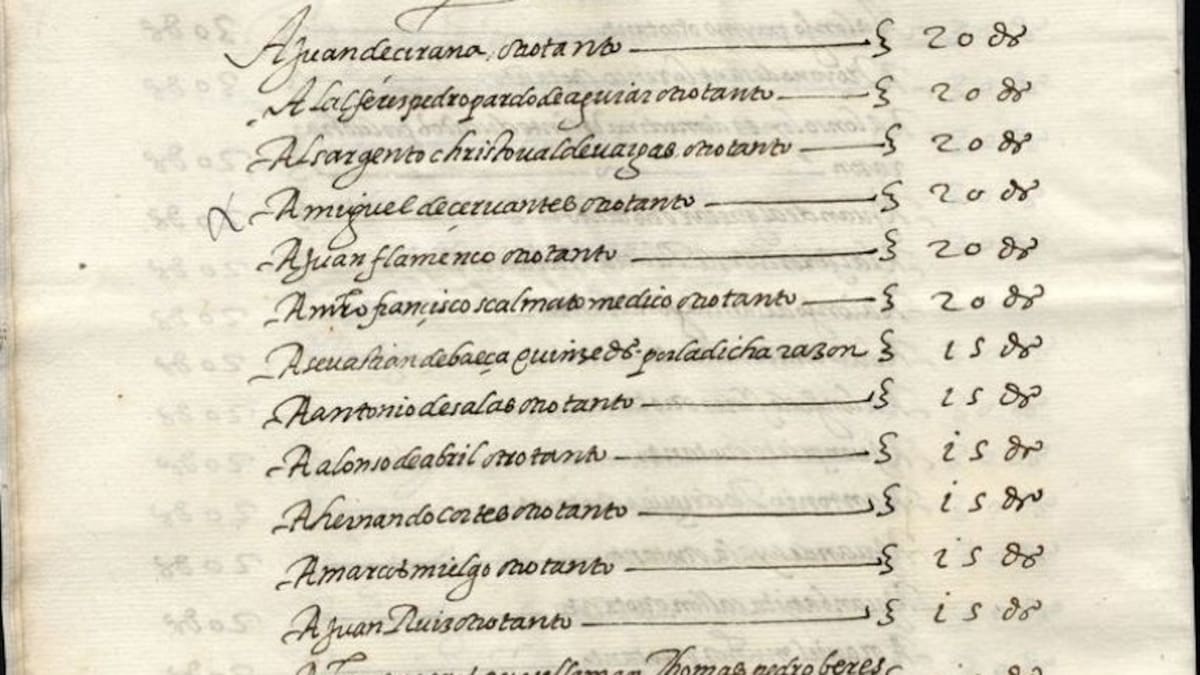 A Juan de cirana, otro tanto 20 ds
Al alferes pedro pardo de aguiar otro tanto 20 ds
Al sargento christoual de uargas otro tanto 20 ds
A miguel de çeruantes otro tanto 20 ds
A Juan flamenco otro tanto 20 ds
A mro françisco scalmato medico otro tanto 20 ds
A seuastian de baeça quinze ds. por la dicha razon 15 ds
A antonio de salas otro tanto 15 ds
A alonso de abril otro tanto 15 ds
A hernando cortes otro tanto 15 ds
A marcos mielgo otro tanto 15 ds
A Juan Ruiz otro tanto 15 ds
Thomas pedro